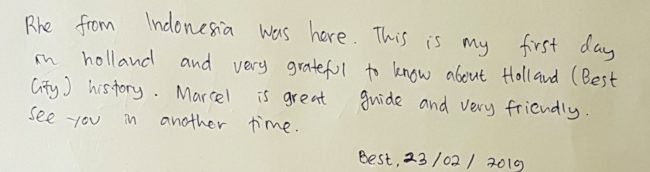 Rhe from Indonesia was here. This is my first day
in holland and very grateful to know about Holland (Best
City) history. Marcel is great guide and very friendly.
See you in another time.
Best, 23/02/2019